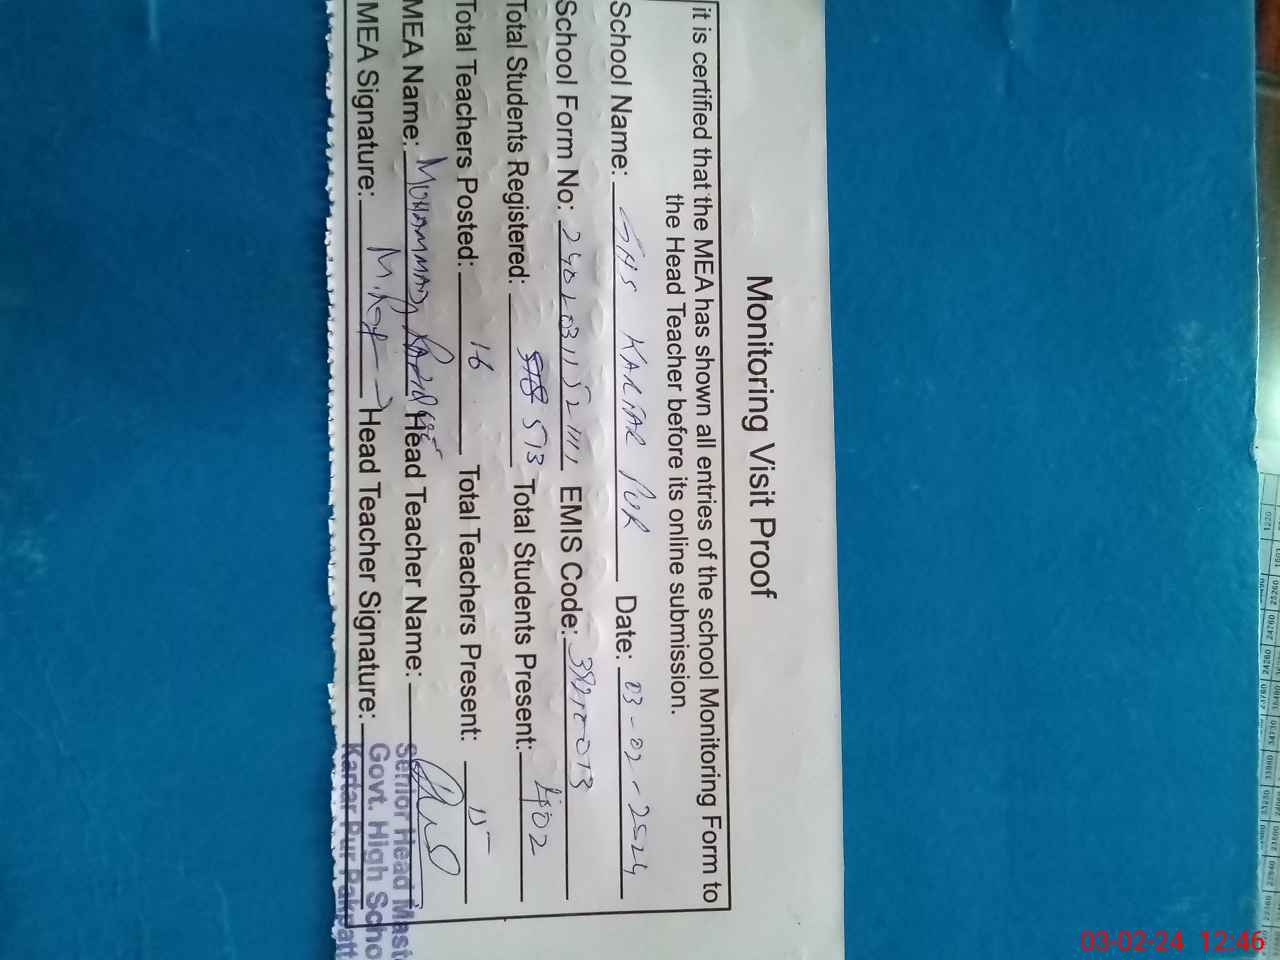 Monitoring Visit Proof
it is certified that the MEA has shown all entries of the school Monitoring Form to
the Head Teacher before its online submission.
School Name: GHS KARTAR PUR Date: 03-02-2024
School Form No: EMIS Code:
Total Students Registered: 513 Total Students Present: 402
Total Teachers Posted: 16 Total Teachers Present: 15
MEA Name: MUHAMMAD Head Teacher Name:
MEA Signature: Head Teacher Signature:
Senior Head Mast
Govt. High Scho
Kartar Pur Pakpatt
03-02-24 12:46